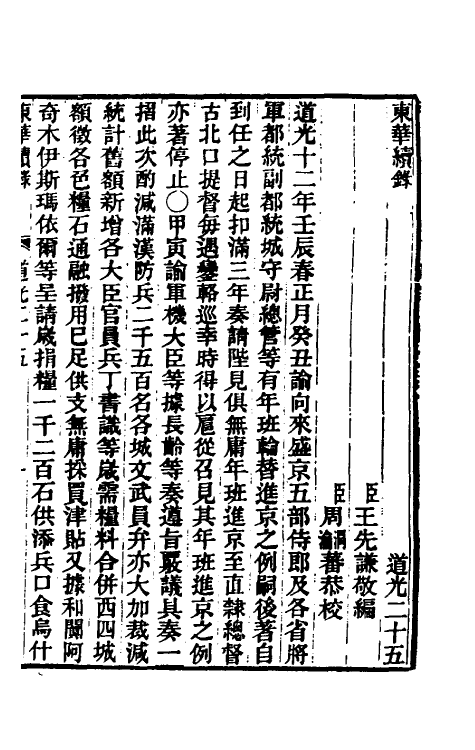 東華續錄
道光二十五
臣王先謙敬編
臣周潤蕃周瀹蕃恭校
道光十二年壬辰春正月癸丑諭向來盛京五部侍郎及各省將
軍都統副都統城守尉總管等有年班輪替進京之例嗣後著自
到任之日起扣滿三年奏請陛見俱無庸年班進京至直隸總督
古北口提督每遇鑾輅巡幸時得以扈從召見其年班進京之例
亦著停止〇甲寅諭軍機大臣等據長齡等奏遵旨嚴議具奏一
摺此次酌減滿漢防兵二千五百名各城文武員弁亦大加裁減
統計舊額新增各大臣官員兵丁書識等歲需糧料合併西四城
額徵各色糧石通融撥用已足供支無庸採買津貼又據和闐阿
奇木伊斯瑪依爾等呈請歲捐糧一千二百石供添兵口食烏什
東華續錄 道光二十五 一